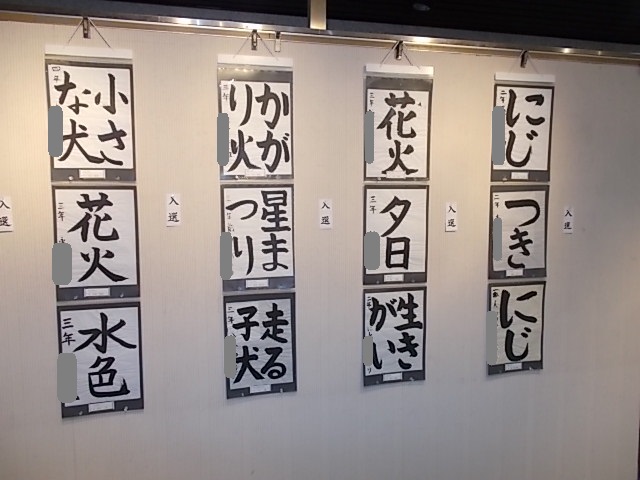 小さ
な犬
四年
花火
三年
水色
三年
入選
かが
り火
三年
星ま
つり
走る
子犬
三年
入選
花火
三年
夕日
三年
生き
がい
入選
にじ
二年
つき
二年
にじ
入選
入選